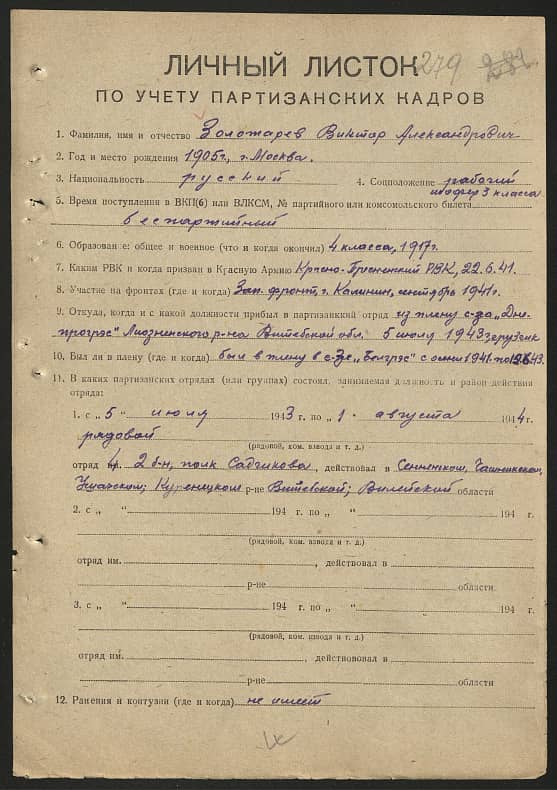 279
ЛИЧНЫЙ ЛИСТОК
ПО УЧЕТУ ПАРТИЗАНСКИХ КАДРОВ
1. Фамилия, имя и отчество Золотарев Виктор Александрович
2. Год и место рождения 1905г., г. Москва.
3. Национальность русский 4. Соцположение рабочий
шофер 3 класса
5. Время поступления в ВКП(б) или ВЛКСМ, № партийного или комсомольского билета
беспартийный
6. Образование: общее и военное (что и когда окончил) 4 класса, 1917г.
7. Каким РВК и когда призван в Красную Армию Красно-Пресненский РВК, 22.6.41.
8. Участие на фронтах (где и когда) Зап. фронт, г. Калинин, сентябрь 1941г.
9. Откуда, когда и с какой должности прибыл в партизанский отряд из плену с-за „Дне-
прогрэс" Лиозненского р-на Витебской обл. 5 июлу 1943 грузчик
10. Был ли в плену (где и когда) был в плену в с-зе „Белгрэс" с осени 1941 по 1943.
11. В каких партизанских отрядах (или группах) состоял, занимаемая должность и район действия
отряда:
1. с „ 5 " июлу 1943 г. по „ 1 · августа 1944 г.
рядовой
(рядовой, ком. взвода и т. д.)
отряд 4, 2 б-н, полк Садчикова, действовал в Сенненском, Чашникском,
Ушачском; Куренецком р-не Витебской; Вилейской области
2. с „ " 194 г. по „ " 194 г.
(рядовой, ком. взвода и т. д.)
отряд им. , действовал в
р-не области.
3. с „ " 194 г. по „ " 194 г.
(рядовой, ком. взвода и т. д.)
отряд им. , действовал в
р-не области
12. Ранения и контузии (где и когда) не имеет